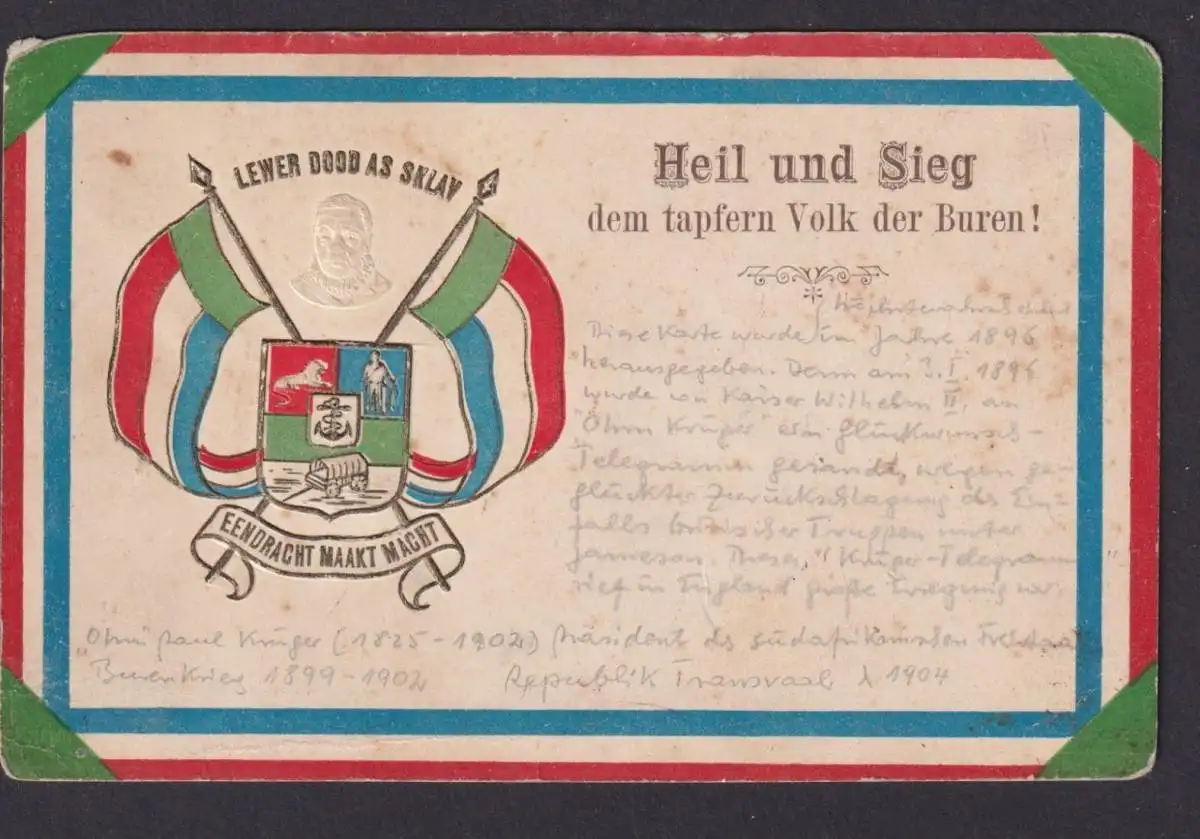 LEWER DOOD AS SKLAV
EENDRACHT MAAKT MACHT
Heil und Sieg
dem tapfern Volk der Buren!
Diese Karte wurde im Jahre 1896
herausgegeben. Denn am 3.I.1896
wurde von Kaiser Wilhelm II. an
"Ohm Krüger" ein Glückwunsch-
Telegramm gesandt, wegen ge-
glückter Zurückschlagung des Ein-
falls britischer Truppen unter
Jameson. Dieses "Krüger-Telegramm
rief in England große Erregung vor.
"Ohm" Paul Krüger (1825-1902) Präsident der südafrikanischen
Burenkrieg 1899-1902 Republik Transvaal 1904